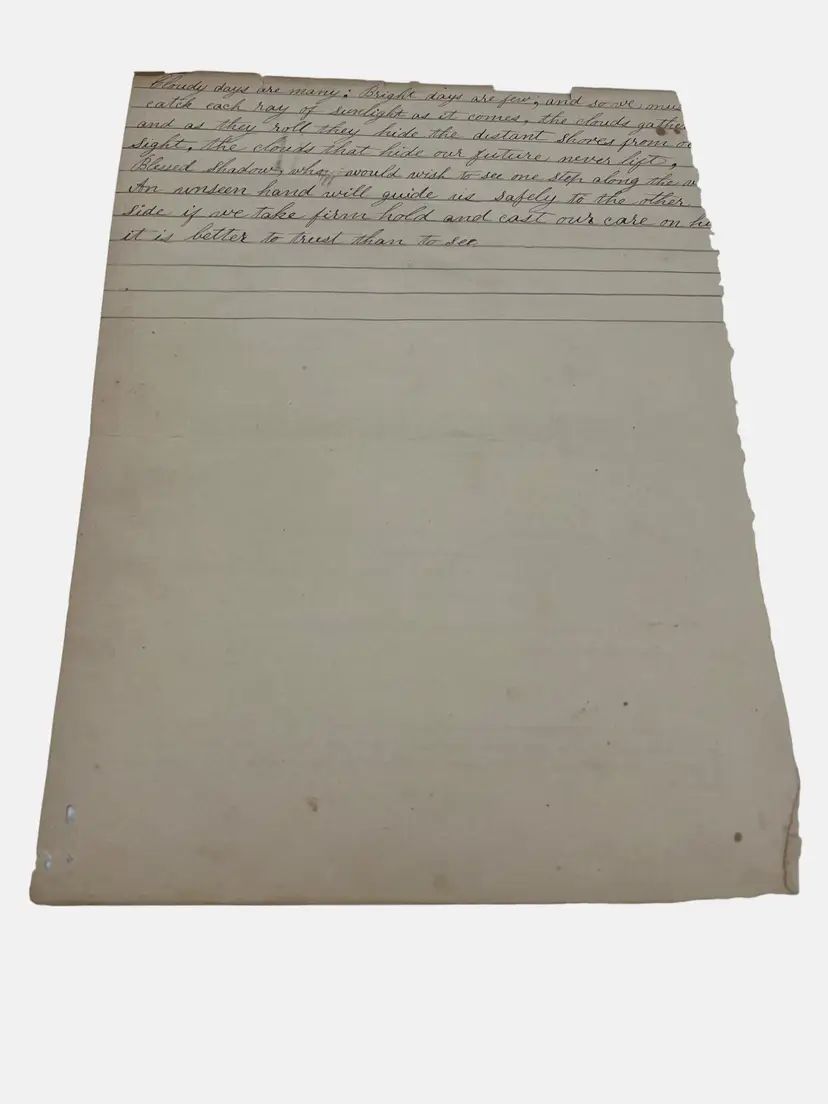 Cloudy days are many: Bright days are few, and so we
catch each ray of sunlight as it comes, the clouds
and as they roll they hide the distant shores from
sight, the clouds that hide our future never lift,
Blessed Shadow, who would wish to see one step along the
An unseen hand will guide us safely to the other
side if we take firm hold and cast our care on
it is better to trust than to see